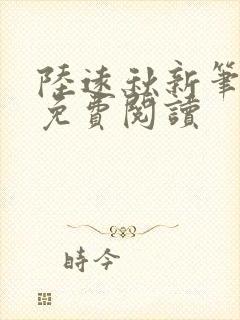 陸遠秋新筆
免費閱讀
時今